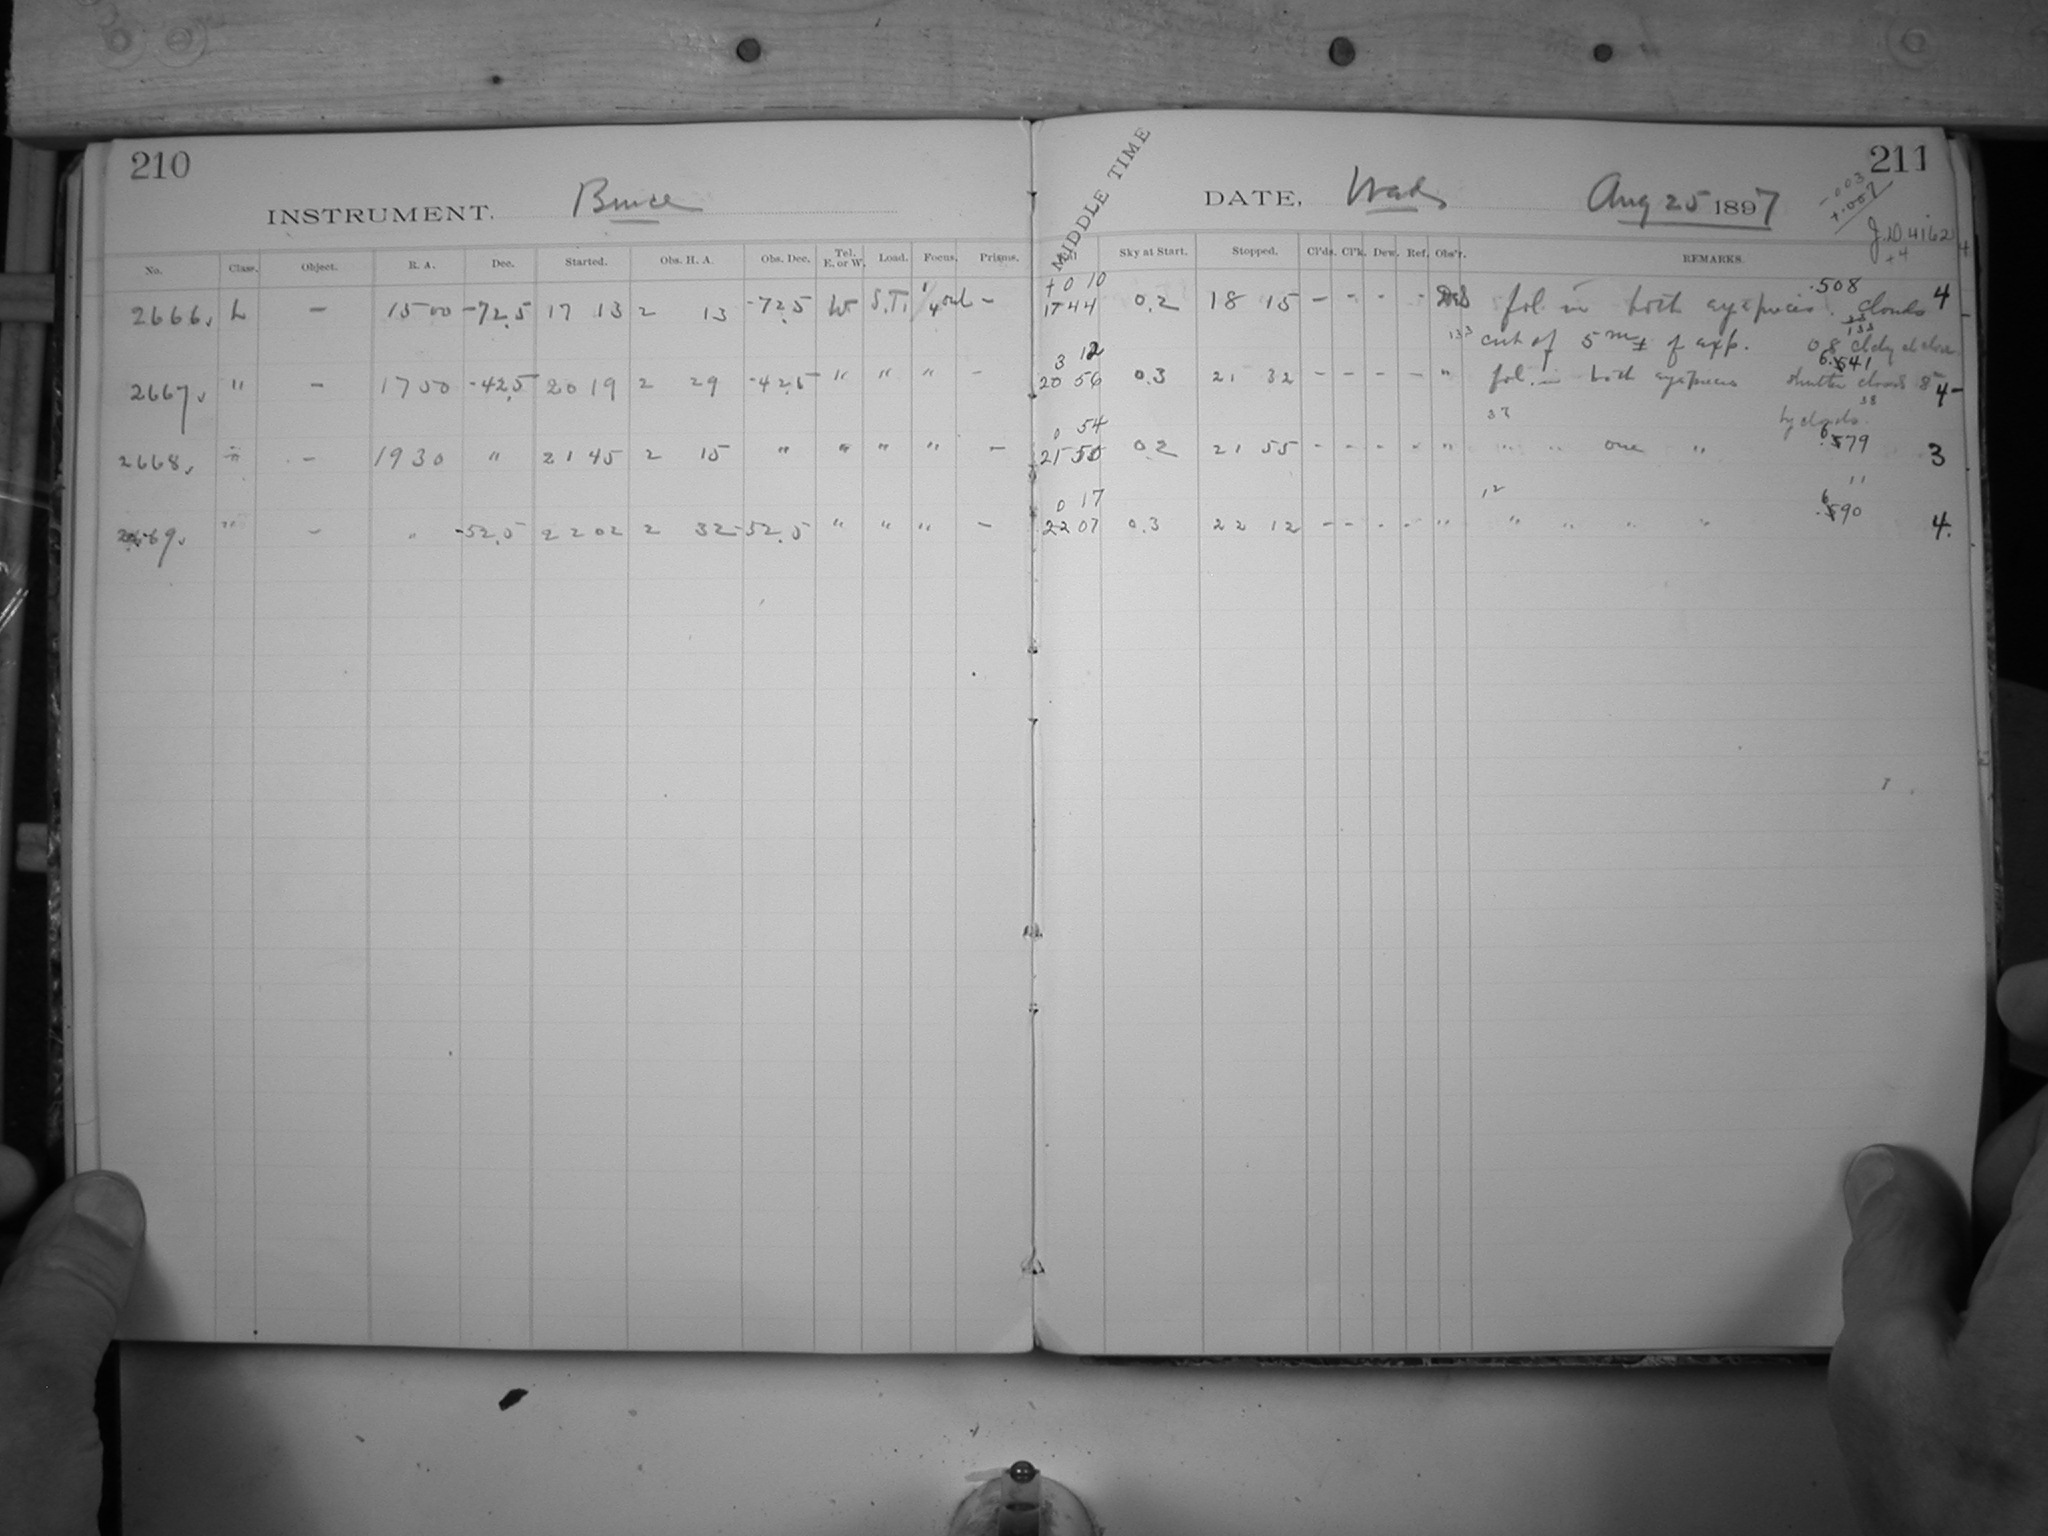 210
INSTRUMENT. Bruce
No. Class. Object. R. A. Dec. Started. Obs. H. A. Obs. Dec. Tel. E. or W. Load. Focus. Prisms.
2666. L – 15 00 -72.5 17 13 2 13 -72.5 W S.T. –
2667. " – 17 50 -42.5 20 19 2 29 -42.5 " " " –
2668. " – 19 30 " 21 45 2 15 " " " " –
2669. " – " -52.5 22 02 2 32 -52.5 " " " –
MIDDLE TIME
211
DATE, Wed Aug 25 1897
-.003
+.007
J.D. 4162
+4
Sky at Start. Stopped. Cl'ds. Cl'k. Dew. Ref. Obs'r. REMARKS.
+0 10 .508
17 44 0.2 18 15 – – – – fol. in both eyepieces. Clouds 4
33
133 cut off 5 m± of exp. 0.8 cldy at close
133
3 12 6.541
20 56 0.3 21 32 – – – – " fol. in both eyepieces shutter closed 8 4
37 by clouds. 38
0 54 6
21 50 0.2 21 55 – – – – " " " one " .579 3
11
0 17 12 6
22 07 0.3 22 12 – – – – " " " " " .590 4.